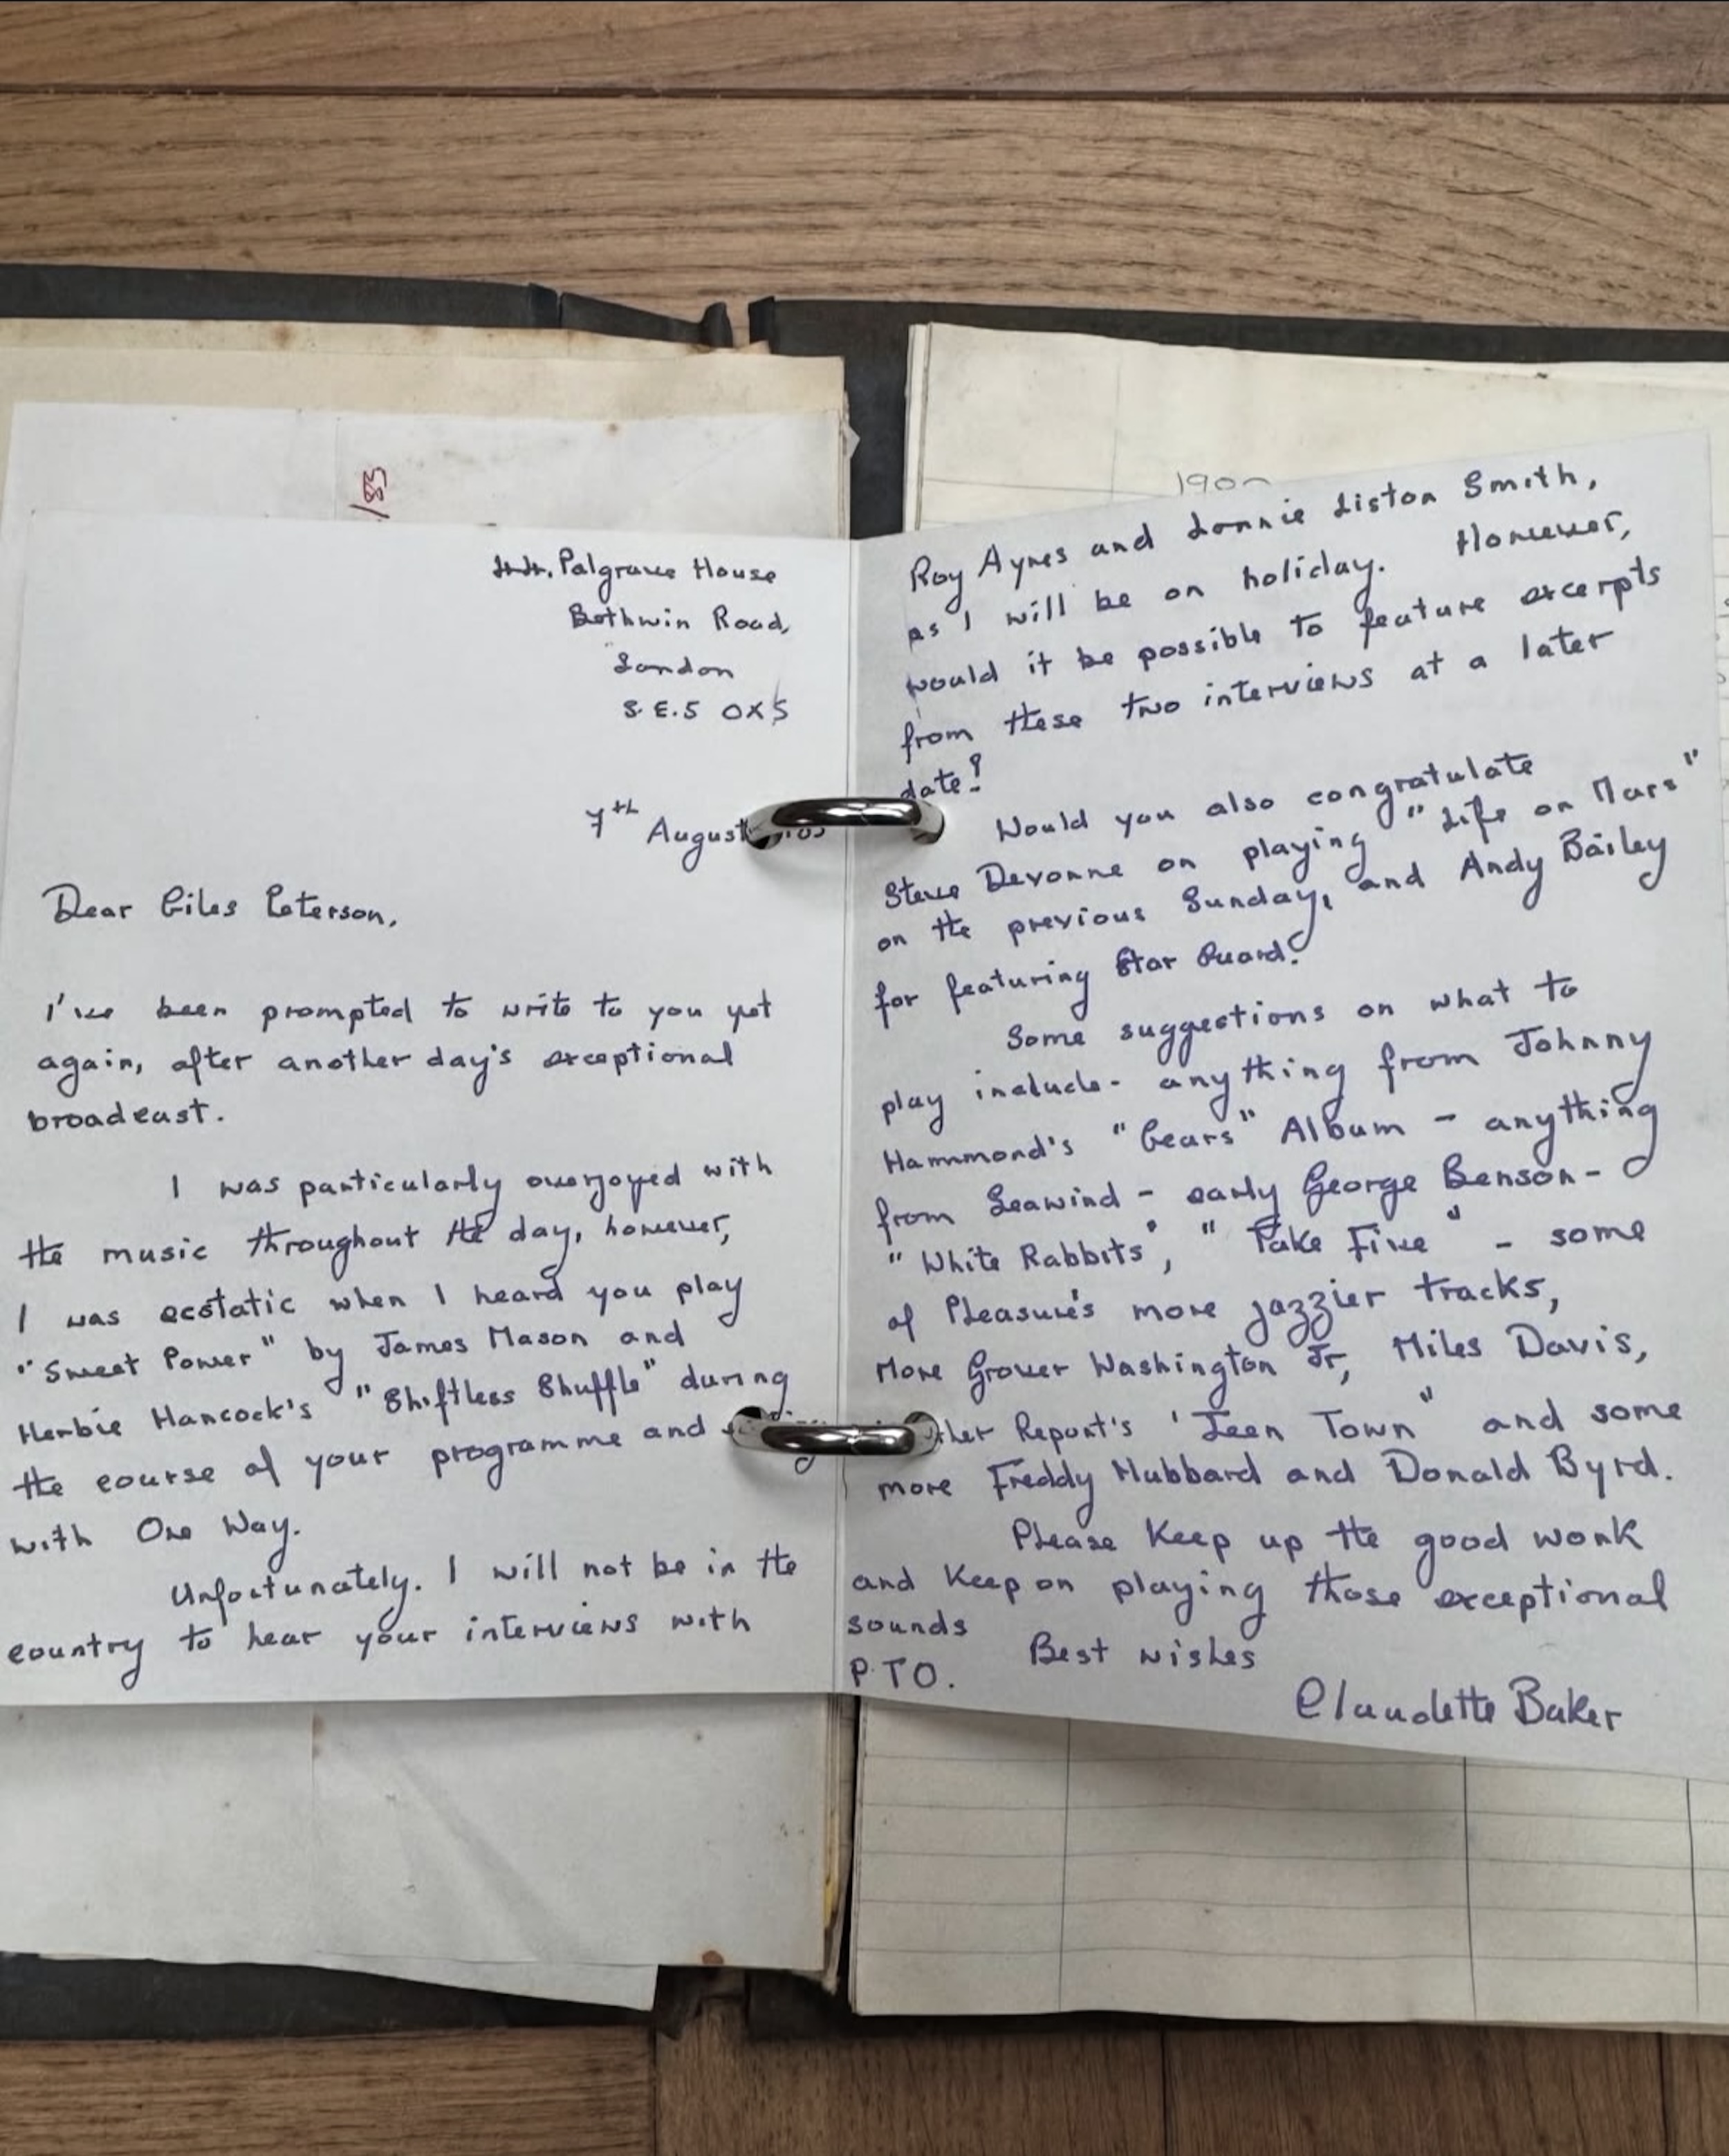 /85
Palgrave House
Bethwin Road,
London
S.E.5 0XS
7th August
Dear Giles Peterson,
I've been prompted to write to you yet
again, after another day's exceptional
broadcast.
I was particularly overjoyed with
the music throughout the day, however,
I was ecstatic when I heard you play
"Sweet Power" by James Mason and
Herbie Hancock's "Shiftless Shuffle" during
the course of your programme and
with One Way.
Unfortunately. I will not be in the
country to hear your interviews with
Roy Ayres and Lonnie Liston Smith,
as I will be on holiday. However,
would it be possible to feature excerpts
from these two interviews at a later
date?
Would you also congratulate
Steve Devonne on playing "Life on Mars"
on the previous Sunday, and Andy Bailey
for featuring Star Guard?
Some suggestions on what to
play include - anything from Johnny
Hammmond's "Gears" Album - anything
from Seawind - early George Benson -
"White Rabbits", "Take Five" - some
of Pleasure's more jazzier tracks,
More Grover Washington Jr, Miles Davis,
ther Report's 'Teen Town" and some
more Freddy Hubbard and Donald Byrd.
Please Keep up the good work
and Keep on playing those exceptional
sounds
Best wishes
P.T.O.
Claudette Baker